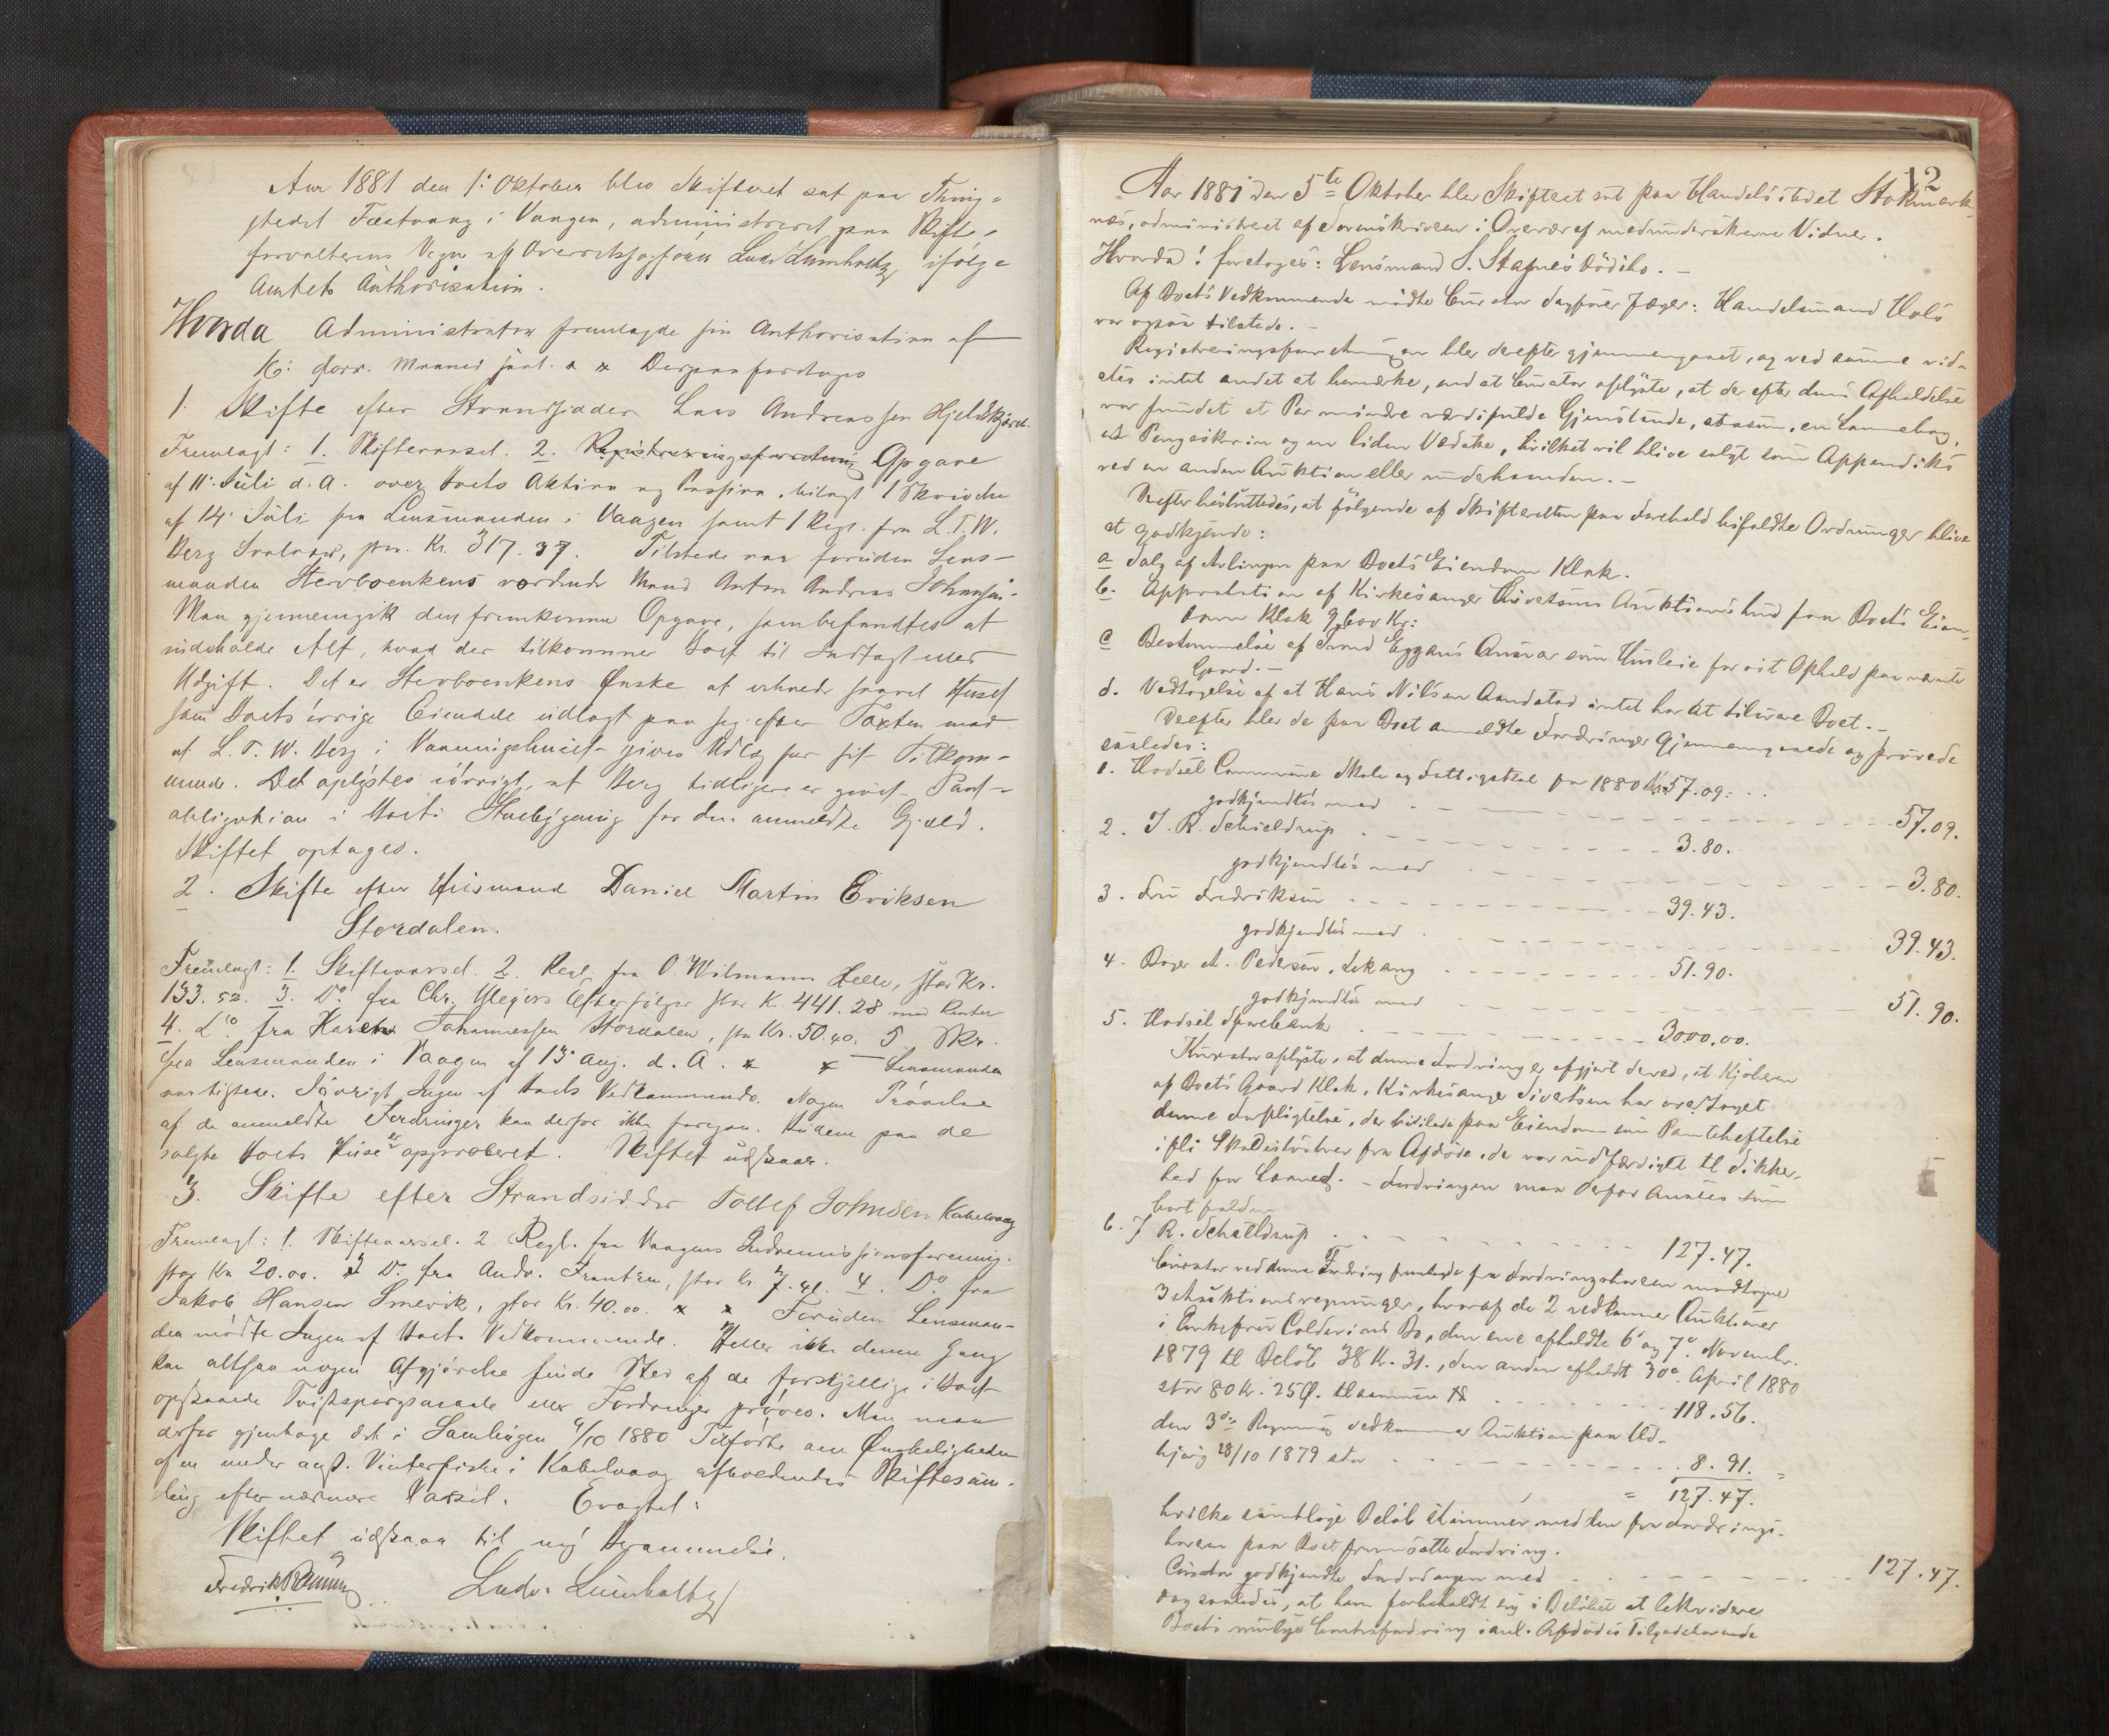 Aar 1881 den 1: Oktober blev Skifteret sat paa Thing-
stedet Fæstvaag i Vaagen, administreret paa Skifte-
forvalterens Vegne af Overretssagfører Ludv. Lumholtz ifølge
Amtets Authorisation.
Hvorda Administrator fremlagde sin Authorisation af
16: forr. Maaned saal. x x Derpaa foretoges
1. Skifte efter Strandsidder Lars Andreassen Hjeldskjæret.
Fremlagt: 1. Skiftevarsel. 2. Registreringsforretning Opgave
af 11: Juli d. A. over Boets Aktiva og Passiva, bilagt 1 Skrivelse
af 14: Juli fra Lensmanden i Vaagen samt 1 Regn. fra L. T. W.
Berg Svolvær, stor Kr. 317.37. Tilstede var foruden Lens-
manden Stervboenkens vordende Mand Anton Andreas Johansen.
Man gjennemgik den fremkomne Opgave, som befandtes at
indeholde Alt, hvad der tilkommer Boet til Indtægt eller
Udgift. Det er Stervboenkens Ønske at erholde saavel Huset
som Boets øvrige Eiendele udlagt paa sig efter Taxten mod
at L. T. W. Berg i Vaaningshuset gives Udlæg for sit Tilkom-
mende. Det oplystes iøvrigt, at Berg tidligere er givet Pant-
obligation i Boets Huebygning for den anmeldte Gjæld.
Skiftet optages.
2. Skifte efter Huusmand Daniel Martin Eriksen
Stordalen.
Fremlagt: 1. Skiftevarsel. 2. Regn. fra O. Wilmann Helle, stor Kr.
133.52. 3. Do. fra Chr. Mejers Efterfølger stor K. 441.28 med Renter
4. Do fra Karen Johannessen Stordalen, stor Kr. 50.40. 5. Skr.
fra Lensmanden i Vaagen af 13: Aug. d. A. x x Lensmanden
var tilstede. Iøvrigt Ingen af Boets Vedkommende. Nogen Prøvelse
af de anmeldte Fordringer kan derfor ikke foregaa. Budene paa de
solgte Boets Huse er approberet. Skiftet udstaar.
3. Skifte efter Strandsidder Tollef Johnsen Kabelvaag
Fremlagt: 1. Skiftevarsel. 2. Regn. fra Vaagens Indremissionsforening.
stor Kr. 20.00. 3 Do. fra Andr. Frantzen, stor Kr. 7.41. 4. Do fra
Jakob Hansen Smevik, stor Kr. 40.00. x x Foruden Lensman-
den mødte Ingen af Boets Vedkommende. Heller ikke denne Gang
kan altsaa nogen Afgjørelse finde Sted af de forskjellige i Boet
opstaaede Tvistspørgsmaale eller Fordringer prøves. Man maa
derfor gjentage det i Samlingen 4/10 1880 Tilførte om Ønskeligheden
af en under angst. Vinterfiske i Kabelvaag afholdendes Skiftesam-
ling efter nærmere Varsel. Eragtet:
Skiftet udstaar til ny Berammelse.
Fredrik Rønning Ludv. Lumholtz
12
Aar 1881 den 5te Oktober blev Skifteret sat paa Handelsstedet Stokmark-
næs, administreret af Sorenskriveren i Overvær af medunderskrevne Vidner.
Hvorda! foretoges: Lensmand S. Stafnes Dødsbo. -
Af Boets Vedkommende mødte Curator Sagfører Jæger: Handelsmand Hals
var ogsaa tilstede. -
Registreringsforretningen blev derefter gjennemgaaet, og ved samme vid-
stes intet andet at bemærke, end at Curator oplyste, at der efter dens Afholdelse
var fundet et Par mindre værdifulde Gjenstande, saasom, en Lommebog,
et Pengeskrin og en liden Vadske, hvilket vil blive solgt som Appendiks
ved en anden Auktion eller underhaanden. -
Derefter besluttedes, at følgende af Skifteretten paa Forehold bifaldte Ordninger blive
at godkjende:
a Salg af Avlingen paa Boets Eiendom Klak.
b. Approbation af Kirkesanger Sivertsens Auktionsbud paa Boets Eien-
dom Klak 9,600 Kr:
c Bestemmelse af Trond Eggans Ansvar som Husleie for sit Ophold paa nævnte
Gaard. -
d. Vedtagelse af at Hans Nilsen Aandstad intet har at tilsvare Boet. -
Derefter blev de paa Boet anmeldte Fordringer gjennemgaaede og prøvede
saaledes:
1. Hadsel Commune Skole og Fattigskat for 1880 Kr. 57.09. . .
godkjendtes med . . . 57.09.
2. J. R. Schieldrup . . . 3.80.
godkjendtes med . . . 3.80.
3. Fru Fredriksen . . . 39.43.
godkjendtes med . . . 39.43.
4. Boger A. Pedersen, Sekang . . . 51.90.
godkjendtes med . . . 51.90.
5. Hadsel Sparebank . . . 3000,00.
Kurator oplyste, at denne Fordring er afgjort derved, at Kjøberen
af Boets Gaard Klak, Kirkesanger Sivertsen har overtaget
denne Forpligtelse, der hvilede paa Eiendommen som Pantehæftelse
ifl. Skadesløsbrev fra Afdøde, da var udfærdiget til Sikker-
hed for Laanet. - Fordringen maa derfor ansees som
bortfalden
6. J R. Schielldrup . . . 127.47.
Curator ved denne Fordring fremlagde fra Fordringshaveren modtagne
3 Auktionsregninger, hvoraf de 2 vedkommer Auktioner
i Enkefru Colderines Bo, den ene afholdte 6 og 7de Novembr.
1879 til Beløb 38 K. 31., den anden afholdt 30e April 1880
stor 80 Kr. 25 Ø. tilsammen Kr . . . 118.56.
den 3die Regning vedkommer Auktion paa Ud-
bjørg 28/10 1879 stor . . . 8.91.
= 127.47.
hvilke samtlige Beløb stemmer med den fra Fordrings-
haveren paa Boet fremsatte Fordring.
Curator godkjendte Fordringen med . . . 127.47.
dog saaledes, at han forbeholdt sig i Beløbet at likvidere
Boets mulige Contrafordring i anl. Afdødes Tilgodehavende